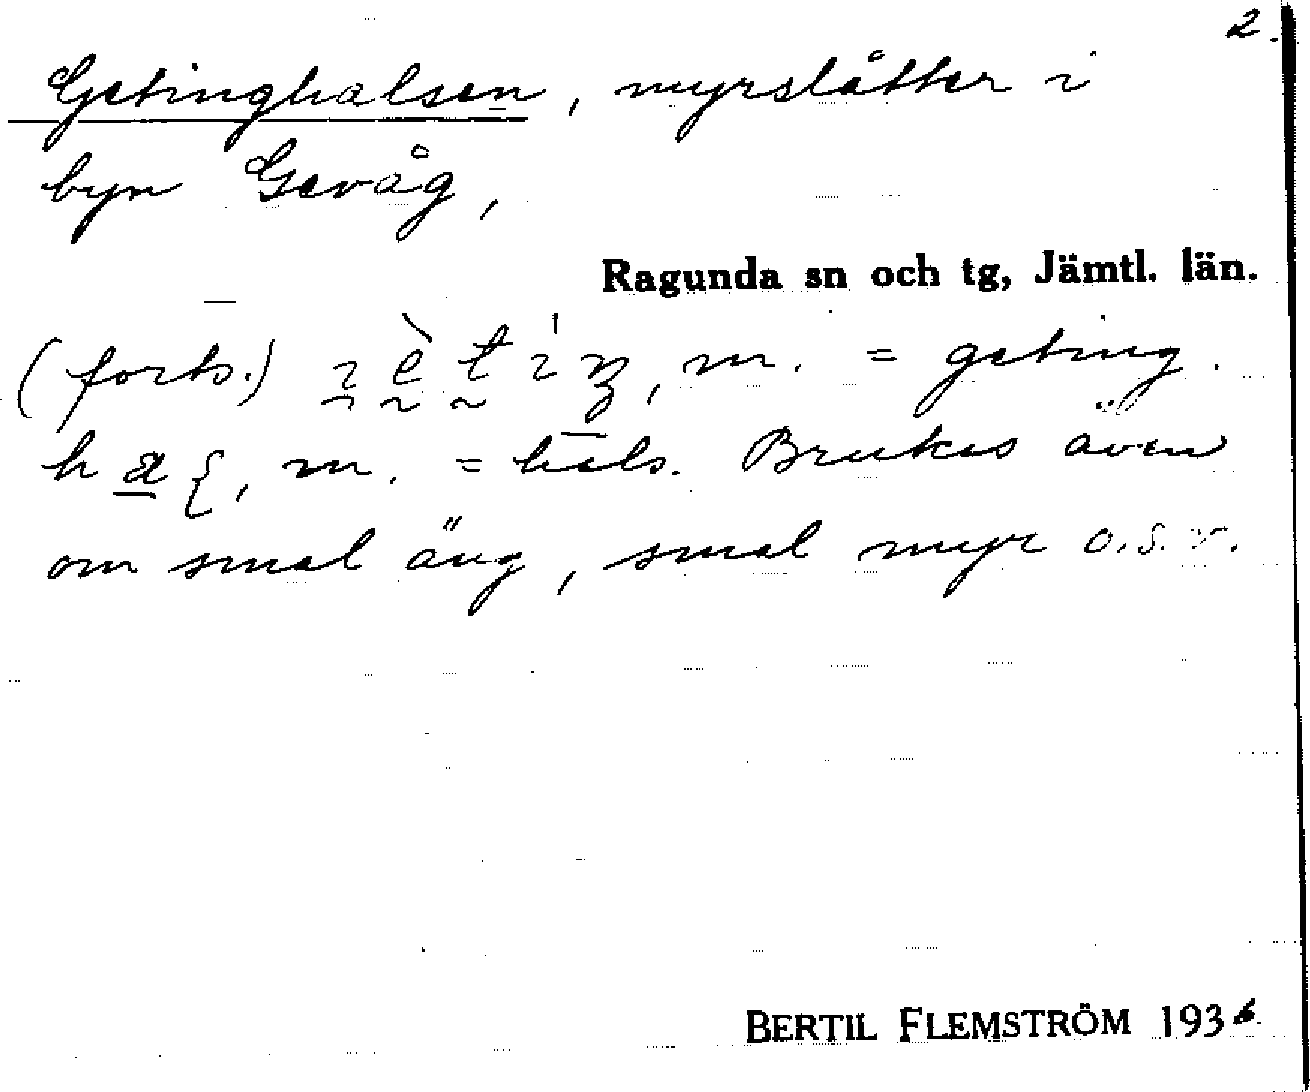 2.
Getinghalsen, myrslåtter i
byn Gevåg,
Ragunda sn och tg, Jämtl. län.
(forts.) m. = geting.
m. = hals. Brukas även
om smal äng, smal myr o.s.v.
BERTIL FLEMSTRÖM 1936